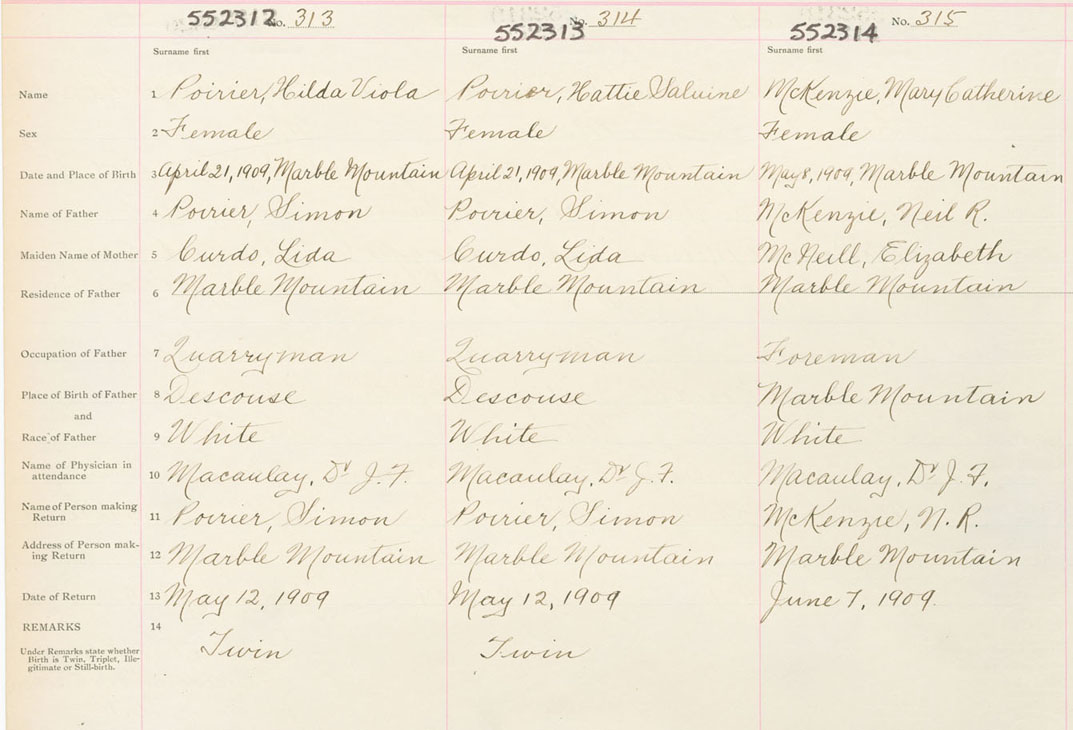 552312 No. 313 552313 No. 314 552314 No. 315
Surname first Surname first Surname first
Name 1 Poirier, Hilda Viola Poirier, Hattie Saluine McKenzie, Mary Catherine
Sex 2 Female Female Female
Date and Place of Birth 3 April 21, 1909, Marble Mountain April 21, 1909, Marble Mountain May 8, 1909, Marble Mountain
Name of Father 4 Poirier, Simon Poirier, Simon McKenzie, Neil R.
Maiden Name of Mother 5 Curdo, Lida Curdo, Lida McNeill, Elizabeth
Residence of Father 6 Marble Mountain Marble Mountain Marble Mountain
Occupation of Father 7 Quarryman Quarryman Foreman
Place of Birth of Father 8 Descouse Descouse Marble Mountain
and
Race of Father 9 White White White
Name of Physician in
attendance 10 Macaulay, Dr J. F. Macaulay, Dr J. F. Macaulay, Dr J. F.
Name of Person making
Return 11 Poirier, Simon Poirier, Simon McKenzie, N. R.
Address of Person mak-
ing Return 12 Marble Mountain Marble Mountain Marble Mountain
Date of Return 13 May 12, 1909 May 12, 1909 June 7, 1909.
REMARKS 14
Under Remarks state whether
Birth is Twin, Triplet, Ille-
gitimate or Still-birth.
Twin Twin